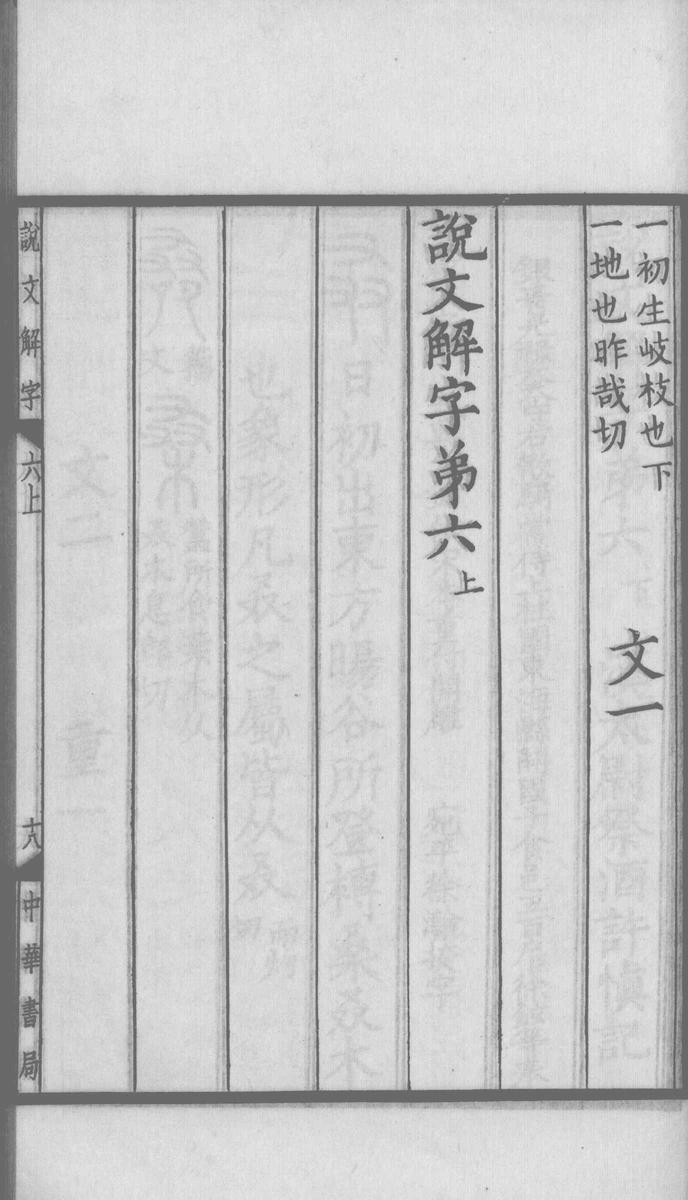 一初生岐枝也下
一地也昨哉切
文一
說文解字弟六上
說文解字
六上
十八
中華書局